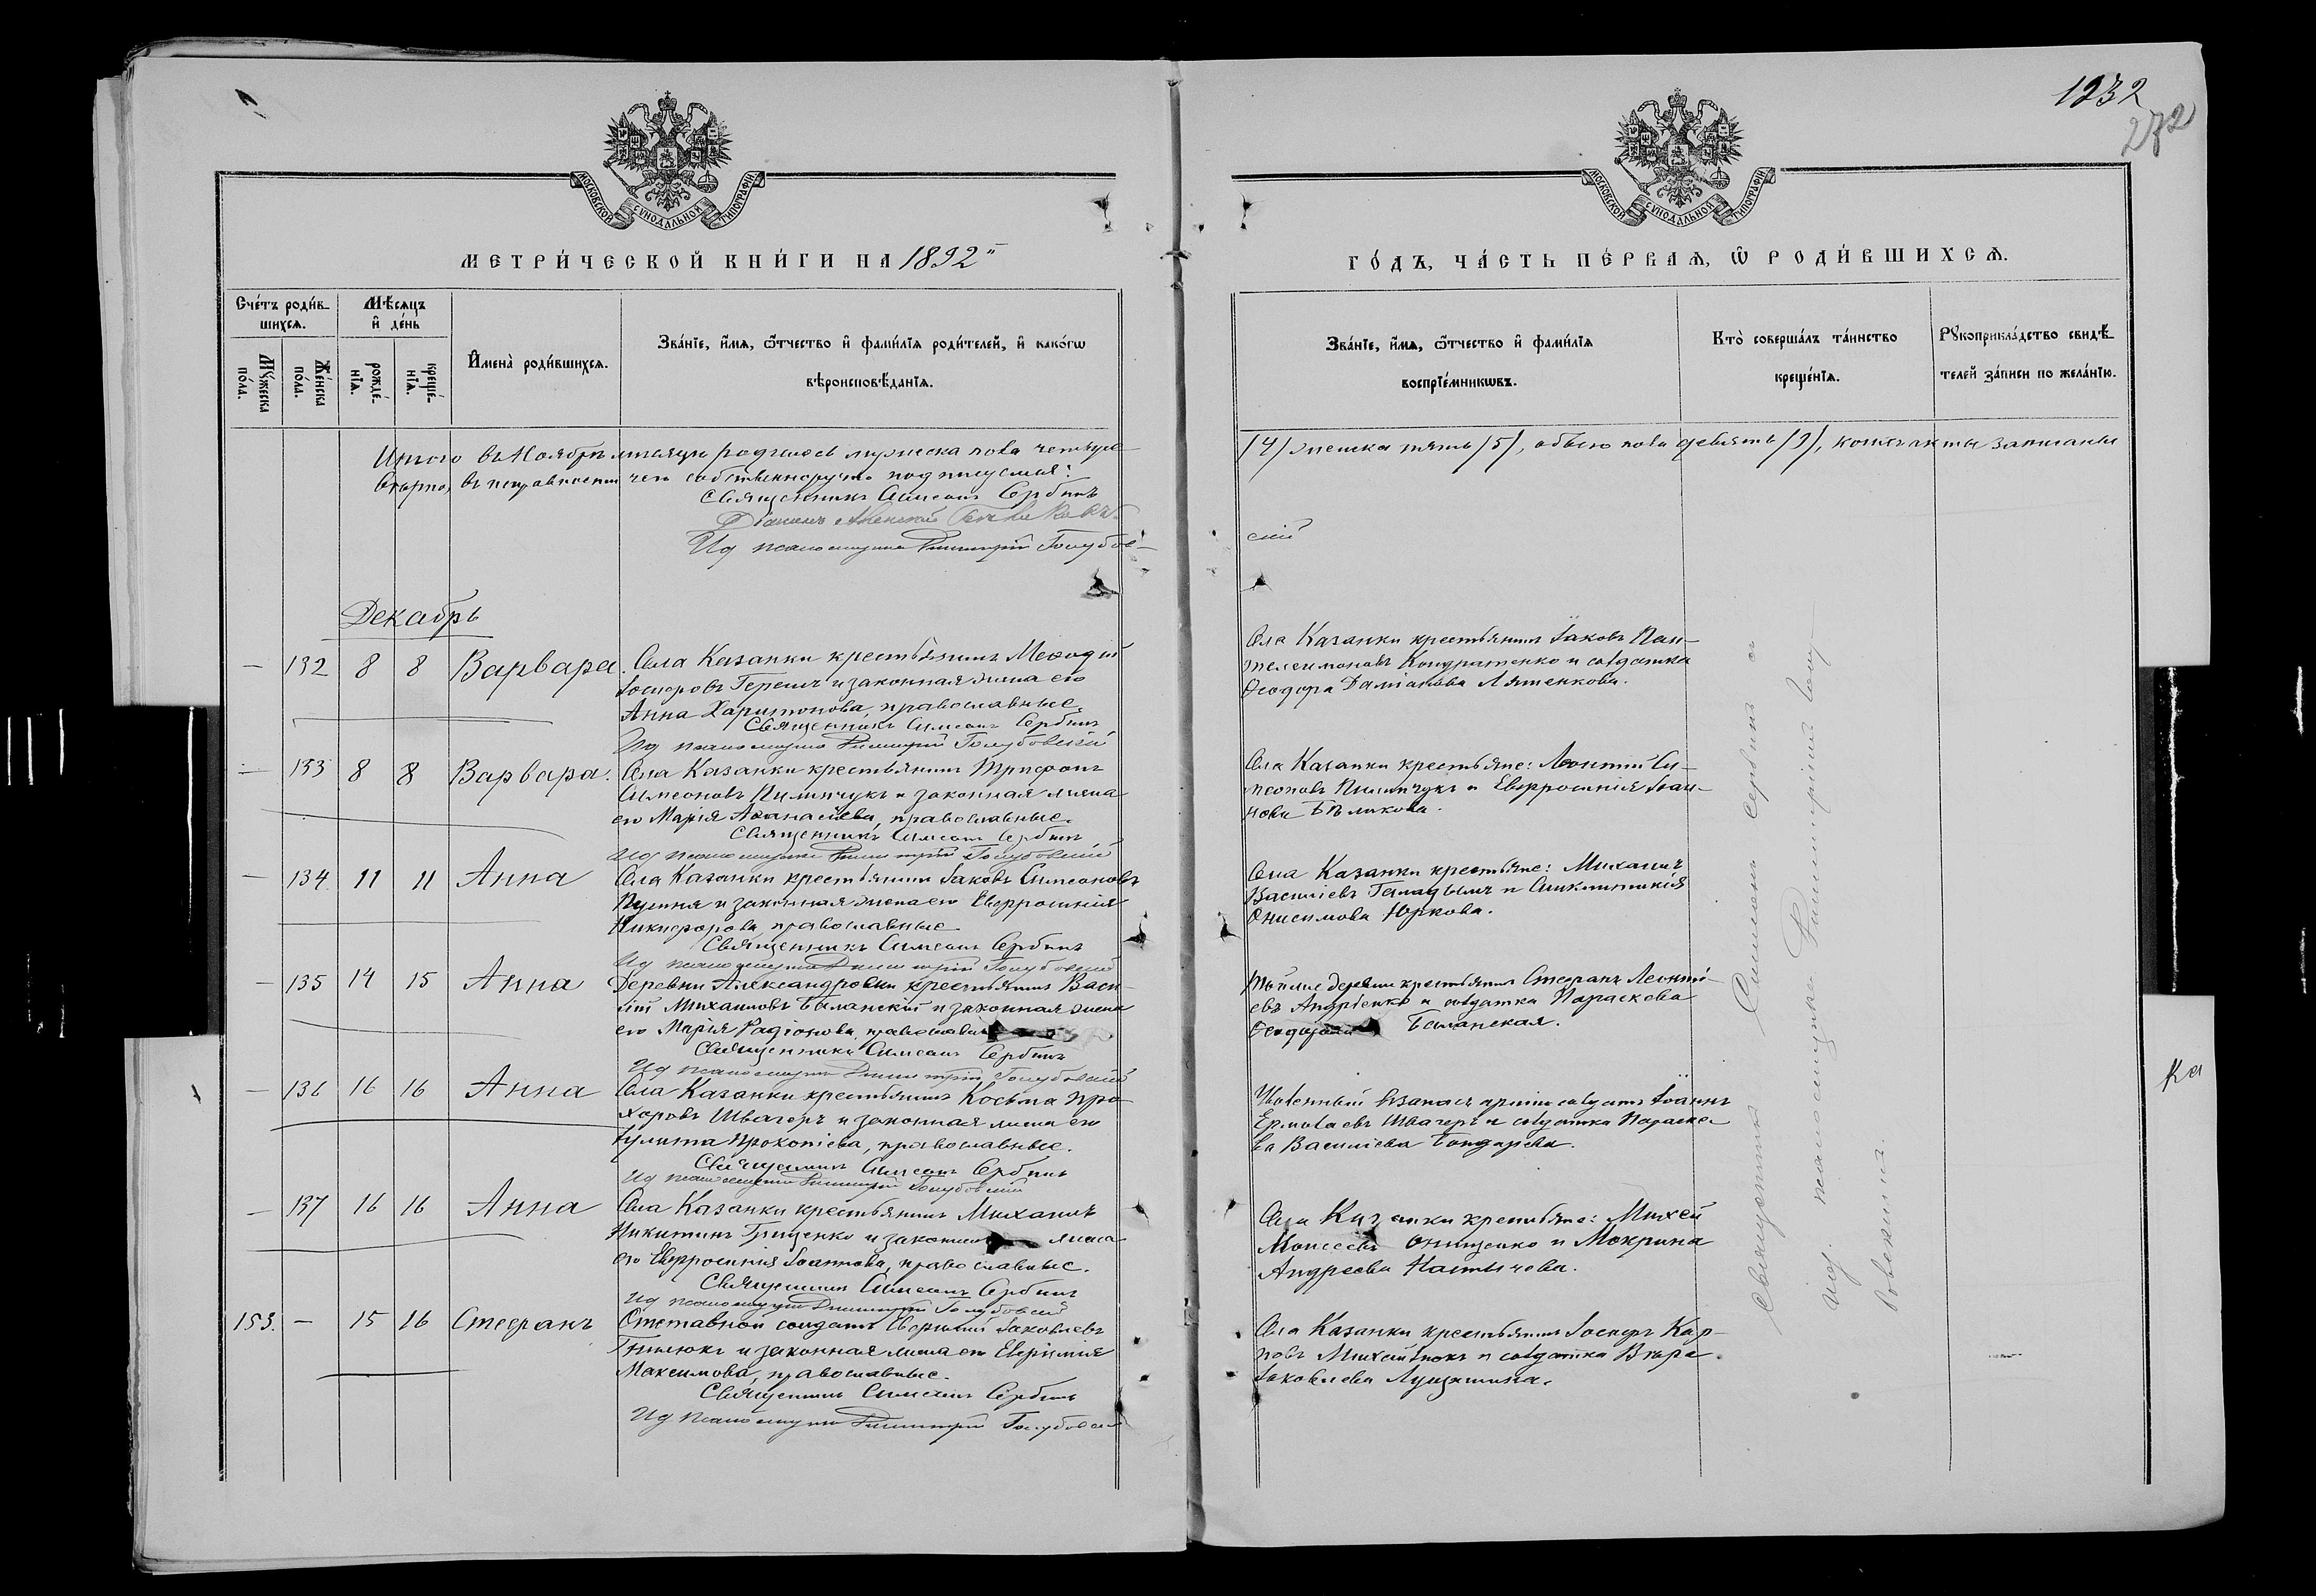 1232
272
МОСКОВСКОЙ СѴНОДАЛЬНОЙ ТИПОГРАФІИ
МОСКОВСКОЙ СѴНОДАЛЬНОЙ ТИПОГРАФІИ
МЕТРИ́ЧЕСКОЙ КНИ́ГИ НА 1892
ГО́ДЪ, ЧА́СТЬ ПЕ́РВАѦ, Ѽ РОДИ́ВШИХСѦ.
Сче́тъ роди́в-
шихсѧ.
Мꙋ́жеска
по́ла.
Же́нска
по́ла.
Мѣ́сѧцъ
и҆ де́нь
рожде́-
нїѧ.
креще́-
нїѧ.
И҆мена̀ роди́вшихсѧ.
Зва́нїе, и҆́мѧ, ѻ҆́тчество и҆ фами́лїѧ роди́телей, и҆ како́гѡ
вѣроисповѣ́данїѧ.
Зва́нїе, и҆́мѧ, ѻ҆́тчество и҆ фами́лїѧ
воспрїе́мникѡвъ.
Кто̀ соверша́лъ та́инство
креще́нїѧ.
Рꙋкоприкла́дство свидѣ́-
телей за́писи по жела́нїю.
Итого въ Ноябрѣ мѣсяцѣ родилось мужска пола четыре
/4/ женска пять /5/, обоего пола девять /9/, акты записаны
вѣрно, въ чего собственноручно подписуемся:
Священникъ Симеонъ Сербинъ
Діаконъ
Ид псаломщика Димитрій Голубов-
скій
Декабрь
— 132 8 8 Варвара. Села Казанки крестьянинъ Меѳодій
Іосифовъ и законная жена его
Анна Харитонова, православные.
Священникъ Симеонъ Сербинъ
Ид псаломщика Димитрій Голубовскій
Села Казанки крестьянинъ Іаковъ Пан-
телеимоновъ Кондратенко и солдатка
Ѳеодора Даміанова Ляшенкова.
— 133 8 8 Варвара. Села Казанки крестьянинъ Трифонъ
Симеоновъ Пилипчукъ и законная жена
его Марія Аѳанасіева, православные.
Священникъ Симеонъ Сербинъ
Ид псаломщика Димитрій Голубовскій
Села Казанки крестьяне: Леонтій Си-
меоновъ Пилипчукъ и Евфросинія Іоан-
нова Бѣликова.
— 134 11 11 Анна Села Казанки крестьянинъ Іаковъ Симеоновъ
и законная жена его Евфросинія
Никифорова, православные
Священникъ Симеонъ Сербинъ
Ид псаломщика Димитрій Голубовскій
Села Казанки крестьяне: Михаилъ
Василіевъ и Синклитикія
Онисимова Юркова.
— 135 14 15 Анна Деревни Александровки крестьянинъ Васи-
лій Михаиловъ Балтанскій и законная жена
его Марія Радіонова, православные
Священникъ Симеонъ Сербинъ
Ид псаломщика Димитрій Голубовскій
Той же деревни крестьянинъ Стефанъ Леонті-
евъ Андріенко и солдатка Параскева
— 136 16 16 Анна Села Казанки крестьянинъ Косьма Про-
хоровъ Швагеръ и законная жена его
Іулитта Прокопіева, православные.
Священникъ Симеонъ Сербинъ
Ид псаломщика Димитрій Голубовскій
Уволенный въ запасъ арміи солдатъ Іоаннъ
Ермолаевъ Швагеръ и солдатка Параске-
ва Василіева Бондарева.
— 137 16 16 Анна Села Казанки крестьянинъ Михаилъ
Никитинъ Грищенко и законная жена
его Евфросинія Іоаннова, православные.
Священникъ Симеонъ Сербинъ
Ид псаломщика Димитрій Голубовскій
Села Казанки крестьяне: Михей
Моисеевъ Онищенко и Мокрина
Андреева
153. — 15 16 Стефанъ Отставной солдатъ Іаковлевъ
и законная жена его Евфимія
Максимова, православные.
Священникъ Симеонъ Сербинъ
Ид псаломщика Димитрій Голубовск
Села Казанки крестьянинъ Іосифъ Кар-
повъ и солдатка Вѣра
Іаковлева
Священникъ Симеонъ Сербинъ и
ид. псаломщика Димитрій Голу-
бовскій
Ка